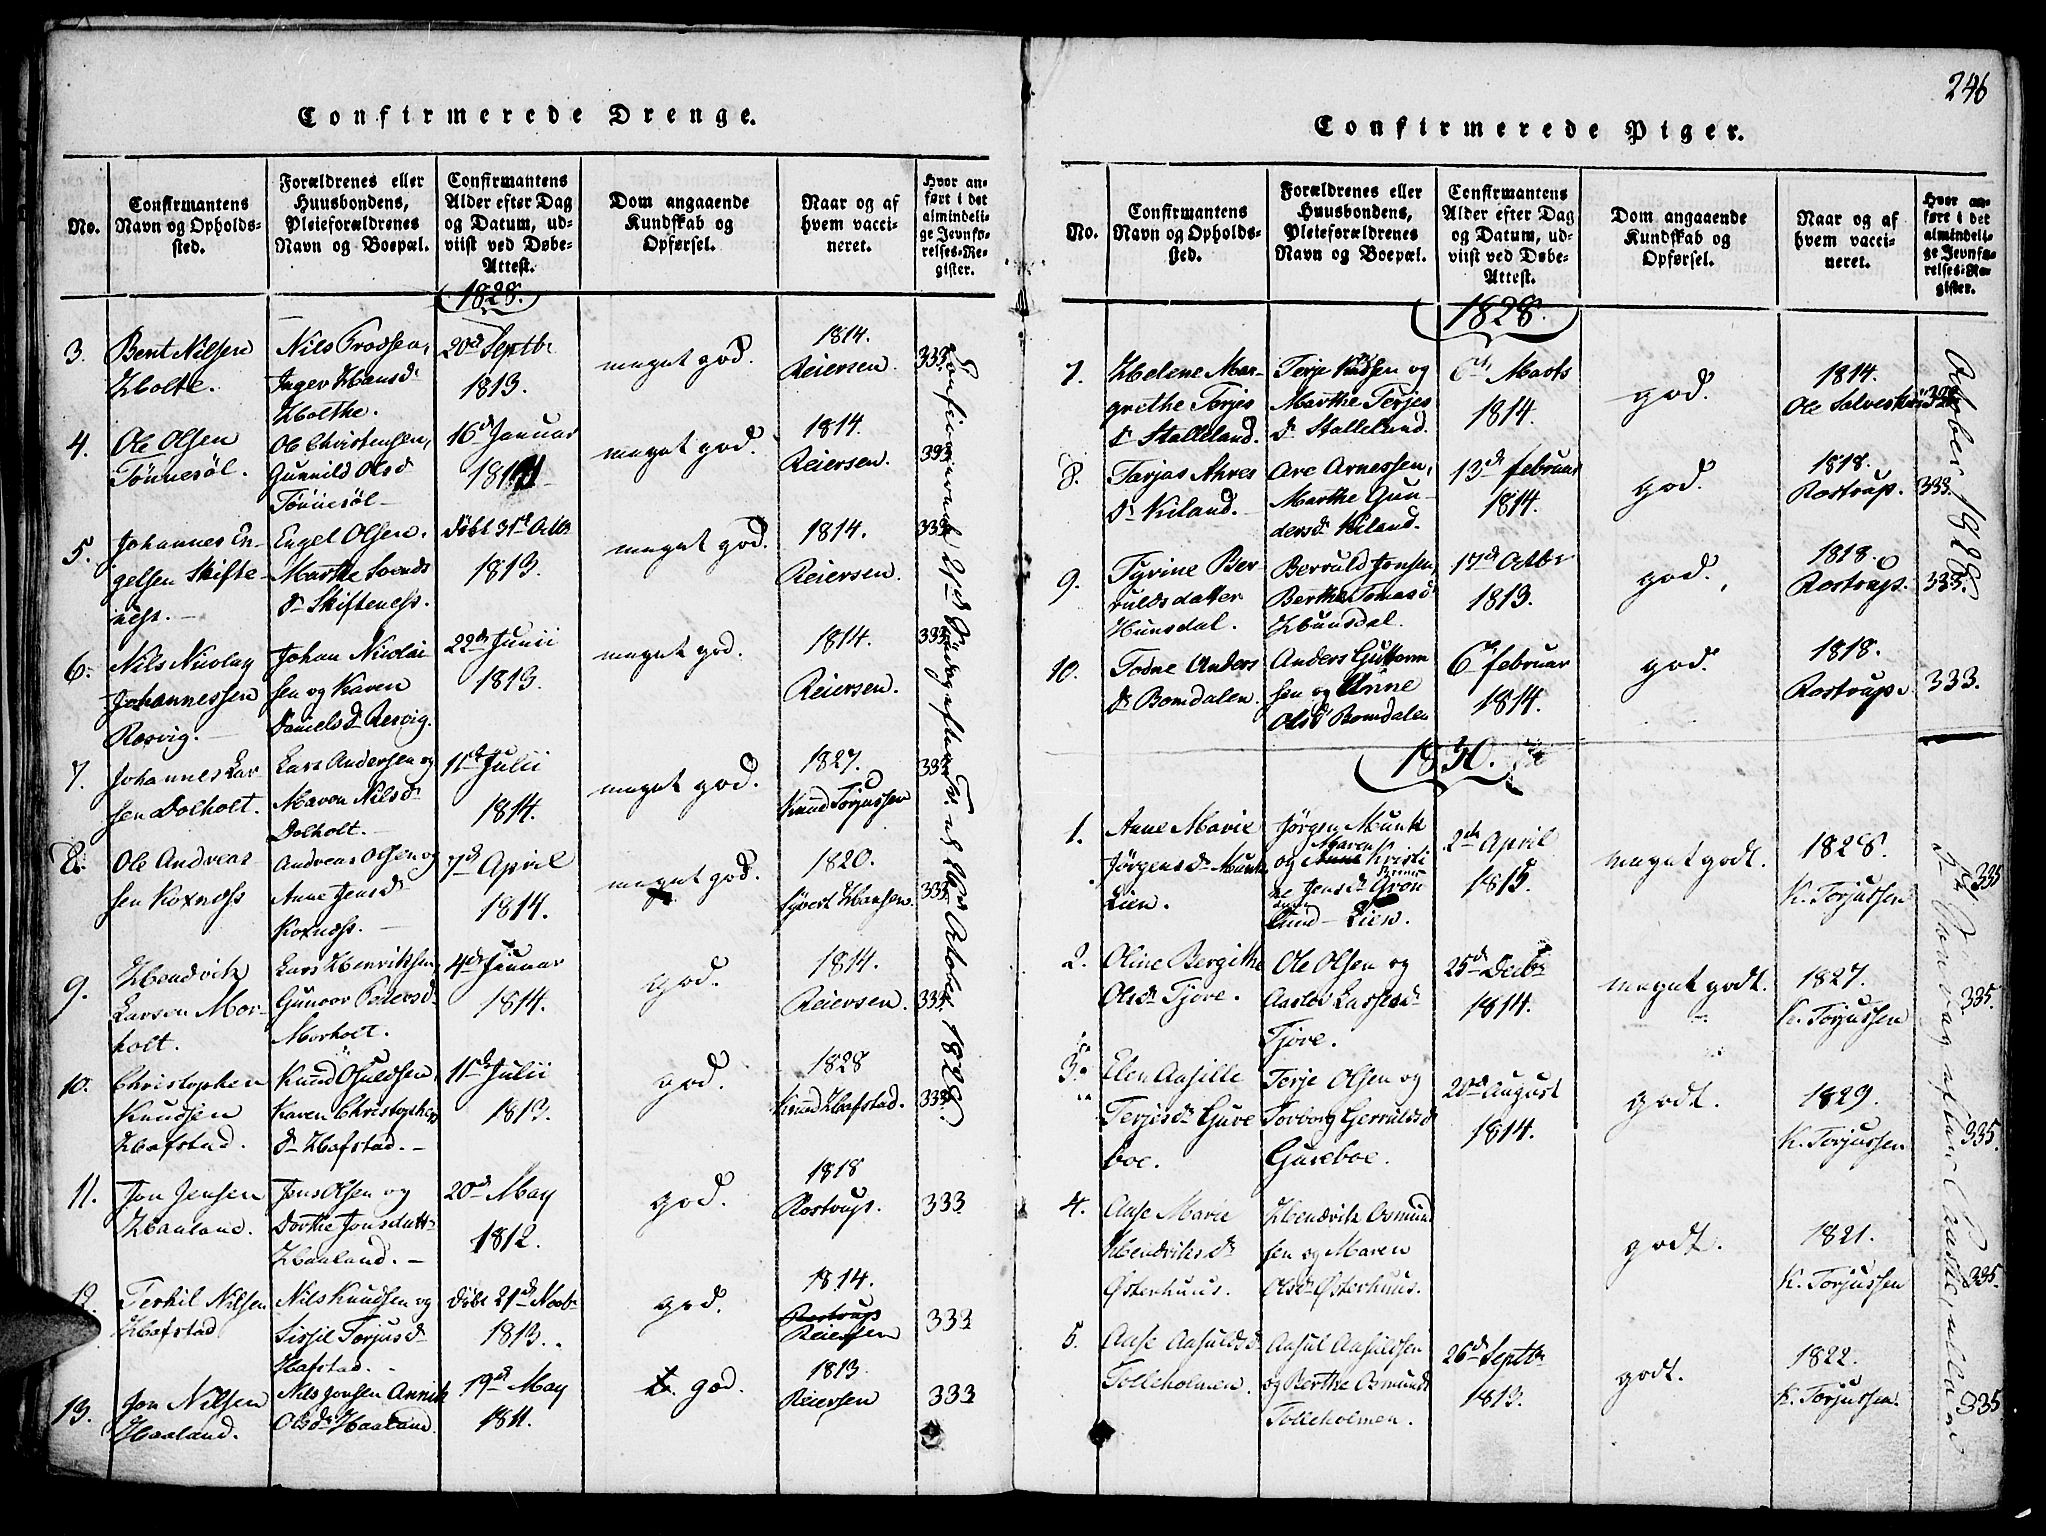 246
Confirmerede Drenge.
No.
Confirmantens
Navn og Opholds-
sted.
Forældrenes eller
Huusbondens,
Pleieforældrenes
Navn og Boepæl.
Confirmantens
Alder efter Dag
og Datum, ud-
viist ved Døbe-
Attest.
Dom angaaende
Kundskab og
Opførsel.
Naar og af
hvem vacci-
neret.
Hvor an-
ført i det
almindeli-
ge Jevnfø-
relses-Re-
gister.
1828.
3.
Bent Nilsen
Holte.
Nils Trossen,
Inger Hansd.
Holthe.
20d Septbr
1813.
meget god.
1814.
Reiersen.
333
4.
Ole Olsen
Tönnesöl.
Ole Christensen,
Gunnild Olsd
Tönnesöl
16d Januar
1814
meget god.
1814.
Reiersen.
333
5.
Johannes En-
gelsen Skifte-
ness.
Engel Olsen.
Marthe Svends
Dr Skifteness.
döbt 31d Octbr
1813.
meget god.
1814.
Reiersen.
333
6.
Nils Nicolay
Johannessen
Rosvig.
Johan Nicolai
sen og Karen
Daniels Dr Resvig.
22de Junii
1813.
meget god.
1814.
Reiersen.
333
7.
Johannes Lar-
sen Dolholt.
Lars Andersen og
Maren Nilsd
Dolholt.
11d Julii
1814.
meget god.
1827.
Knud Torjussen
333
8.
Ole Andreas-
sen Koxness
Andreas Olsen og
Anne Jensd
Koxness.
7d April
1814.
meget god.
1820.
Syvert Hansen.
333
9.
Hendrik
Larsen Mor-
holt.
Lars Henriksen,
Gunvor Pedersd
Morholt.
4d Januar
1814.
god.
1814.
Reiersen.
333
10.
Christopher
Knudsen
Hafstad.
Knud Osuldsen,
Karen Christophers
Dr Hafstad.
11d Julii
1813.
god.
1828
Knud Hafstad.
333
11.
Jon Jensen
Haaland.
Jens Olsen og
Dorthe Jonsdatt
Haaland.
20d May
1812.
god.
1818
Rostrup.
333
12.
Terkil Nilsen
Hafstad
Nils Knudsen og
Sissil Torjusd
Hafstad.
döbt 21d Novbr
1813.
god.
1814.
Rostrup
Reiersen
333
13.
Jon Nilsen
Haaland.
Nils Jonsen Annik
Olsd Haaland.
19d May
1811.
god.
1813
Reiersen
333
Confirmerede Piger.
No.
Confirmantens
Navn og Opholds-
sted.
Forældrenes eller
Huusbondens,
Pleieforældrenes
Navn og Boepæl.
Confirmantens
Alder efter Dag
og Datum, ud-
viist ved Døbe-
Attest.
Dom angaaende
Kundskab og
Opførsel.
Naar og af
hvem vacci-
neret.
Hvor an-
ført i det
almindeli-
ge Jevnfø-
relses-Re-
gister.
1828.
7.
Helene Mar-
grethe Terjes
Dr Stalleland.
Terje Knudsen og
Marthe Terjes
Dr Stalleland.
6te Marts
1814.
god.
1814.
8.
Dr Kiland.
Are Arnessen,
Marthe Gun-
dersd Kiland.
13d februar
1814.
god.
1818.
Rostrup.
333.
9.
Tyrine Ber-
ruldsdatter
Hunsdal.
Berruld Jonsen,
Berthe Tomasd
Huunsdal.
17d Octbr
1813.
god.
1818.
Rostrup.
333.
10.
Todne Anders
Dr Bomdalen.
Anders Guttorm
sen og Anne
Olsd Bomdalen
6te februar
1814.
god.
1818.
Rostrup.
333.
October 1828.
1830.
1.
Anne Marie
Jörgensd. Munk
Lien.
Jörgen Munk
og Maren Kristi
ne Jensd. Grön
lund - Lien.
2de April
1815.
meget godt.
1828.
K. Torjussen
335
2.
Oline Bergithe
Olsd. Tjore.
Ole Olsen og
Tjore.
25d Decbr
1814.
meget godt.
1827.
K. Torjussen
335.
3.
Elen Aasille
Terjesd. Gure
boe.
Terje Olsen og
Torborg Gerruldsd
Gureboe.
20d August
1814.
godt.
1829.
K. Torjussen
335.
4.
Aase Marie
Hendriksd.
Østerhuus.
Hendrik Osmund
sen og Maren
Olsd. Østerhuus.
godt.
1821.
K. Torjussen
335.
5.
Aase Aasuldsd
Tolleholmen.
Aasul Aasuldsen
og Berthe Osmundsd
Tolleholmen.
26d Septbr
1813.
godt.
1822.
K. Torjussen.
335